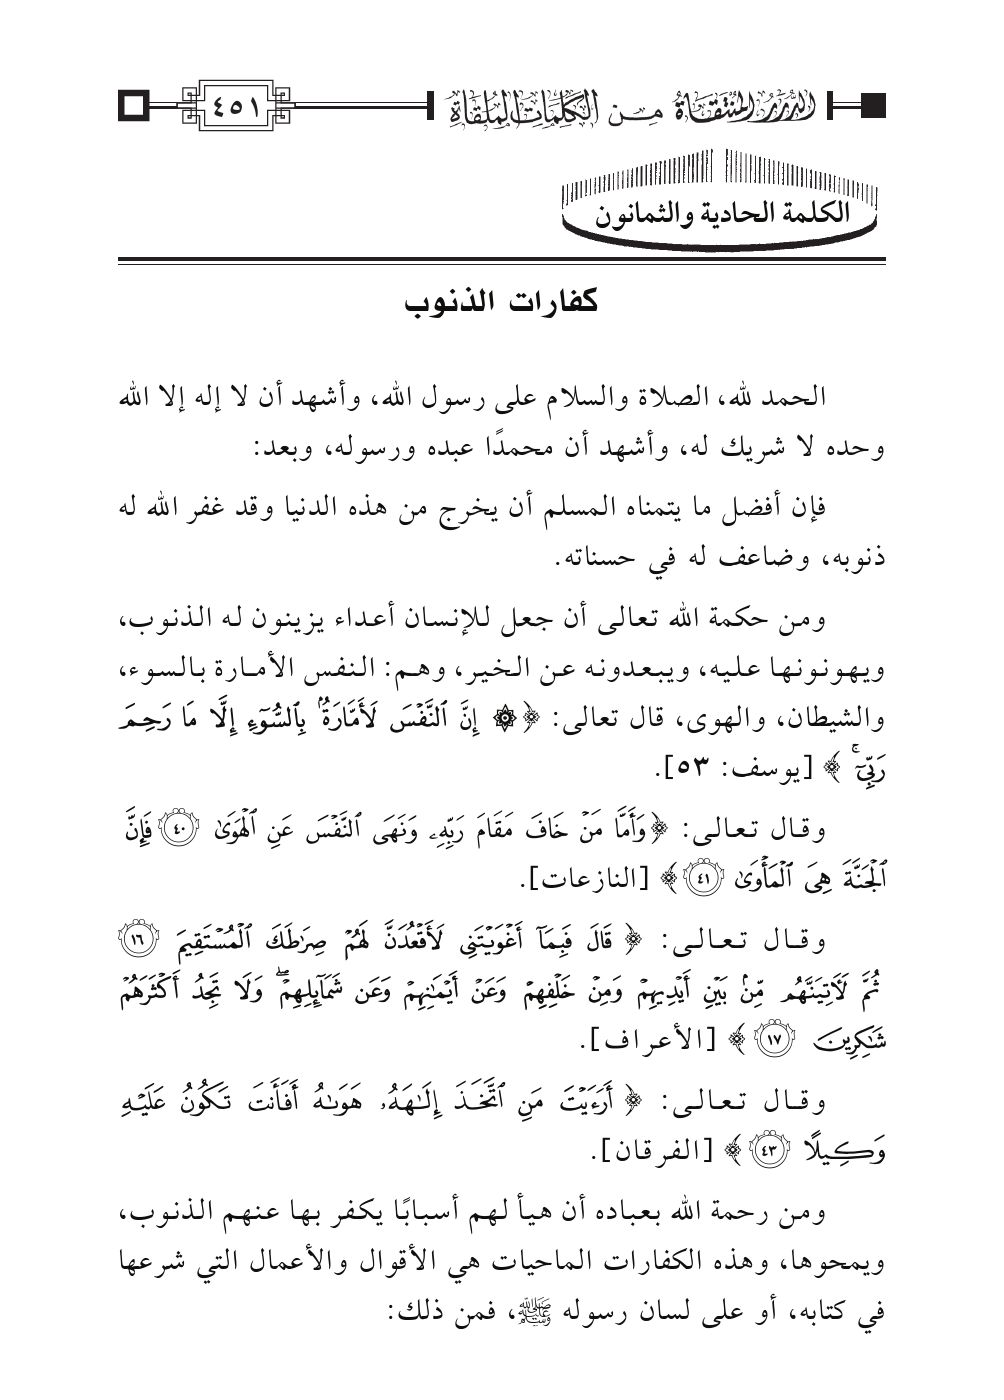 الدرر المنتقاة من الكلمات الملقاة
٤٥١
الكلمة الحادية والثمانون
كفارات الذنوب
الحمد لله، الصلاة والسلام على رسول الله، وأشهد أن لا إله إلا الله
وحده لا شريك له، وأشهد أن محمدًا عبده ورسوله، وبعد:
فإن أفضل ما يتمناه المسلم أن يخرج من هذه الدنيا وقد غفر الله له
ذنوبه، وضاعف له في حسناته.
ومن حكمة الله تعالى أن جعل للإنسان أعداء يزينون له الذنوب،
ويهونونها عليه، ويبعدونه عن الخير، وهم: النفس الأمارة بالسوء،
والشيطان، والهوى، قال تعالى: ﴿ ۞ إِنَّ ٱلنَّفْسَ لَأَمَّارَةُۢ بِٱلسُّوٓءِ إِلَّا مَا رَحِمَ
رَبِّيٓۚ ﴾ [يوسف: ٥٣].
وقال تعالى: ﴿ وَأَمَّا مَنْ خَافَ مَقَامَ رَبِّهِۦ وَنَهَى ٱلنَّفْسَ عَنِ ٱلْهَوَىٰ ٤٠ فَإِنَّ
ٱلْجَنَّةَ هِىَ ٱلْمَأْوَىٰ ٤١ ﴾ [النازعات].
وقال تعالى: ﴿ قَالَ فَبِمَآ أَغْوَيْتَنِى لَأَقْعُدَنَّ لَهُمْ صِرَٰطَكَ ٱلْمُسْتَقِيمَ ١٦
ثُمَّ لَـَٔاتِيَنَّهُم مِّنۢ بَيْنِ أَيْدِيهِمْ وَمِنْ خَلْفِهِمْ وَعَنْ أَيْمَٰنِهِمْ وَعَن شَمَآئِلِهِمْۖ وَلَا تَجِدُ أَكْثَرَهُمْ
شَٰكِرِينَ ١٧ ﴾ [الأعراف].
وقال تعالى: ﴿ أَرَءَيْتَ مَنِ ٱتَّخَذَ إِلَٰهَهُۥ هَوَىٰهُ أَفَأَنتَ تَكُونُ عَلَيْهِ
وَكِيلًا ٤٣ ﴾ [الفرقان].
ومن رحمة الله بعباده أن هيأ لهم أسبابًا يكفر بها عنهم الذنوب،
ويمحوها، وهذه الكفارات الماحيات هي الأقوال والأعمال التي شرعها
في كتابه، أو على لسان رسوله ﷺ، فمن ذلك: